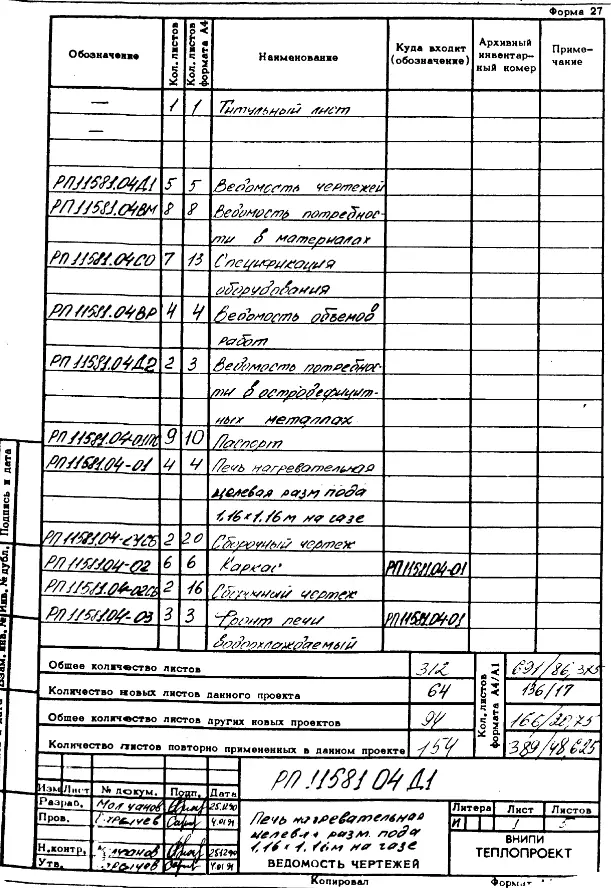 Форма 27
Обозначение Кол. листов Кол. листов формата А4 Наименование Куда входит (обозначение) Архивный инвентарный номер Примечание
— 1 1 Титульный лист
—
РП11581.04Д1 5 5 Ведомость чертежей
РП11581.04ВМ 8 8 Ведомость потребнос-
ти в материалах
РП11581.04СО 7 13 Спецификация
оборудования
РП11581.04ВР 4 4 Ведомость объемов
работ
РП11581.04Д2 2 3 Ведомость потребнос-
ти в остродефицит-
ных металлах
РП11581.04-01ПС 9 10 Паспорт
РП11581.04-01 4 4 Печь нагревательная
щелевая разм пода
1,16×1,16м на газе
2 20 Сборочный чертеж
РП11581.04-02 6 6 Каркас РП11581.04-01
РП11581.04-02СБ 2 16 Сборочный чертеж
РП11581.04-03 3 3 Фронт печи РП11581.04-01
водоохлаждаемый
Подпись и дата
Инв. № дубл.
Взам. инв. №
Общее количество листов 312 691/86,375
Количество новых листов данного проекта 64 136/17
Общее количество листов других новых проектов 94 166/20,75
Количество листов повторно примененных в данном проекте 154 389/48,625
Кол. листов формата А4/А1
РП11581 04 Д1
Изм Лист № докум. Подп. Дата
Разраб. Молчанов 25.12.90
Пров. 4.01.91
Н.контр. 25.12.90
Утв. 4.01.91
Печь нагревательная
щелевая разм. пода
1,16×1,16м на газе
ВЕДОМОСТЬ ЧЕРТЕЖЕЙ
Литера Лист Листов
И 1 5
ВНИПИ
ТЕПЛОПРОЕКТ
Копировал Формат